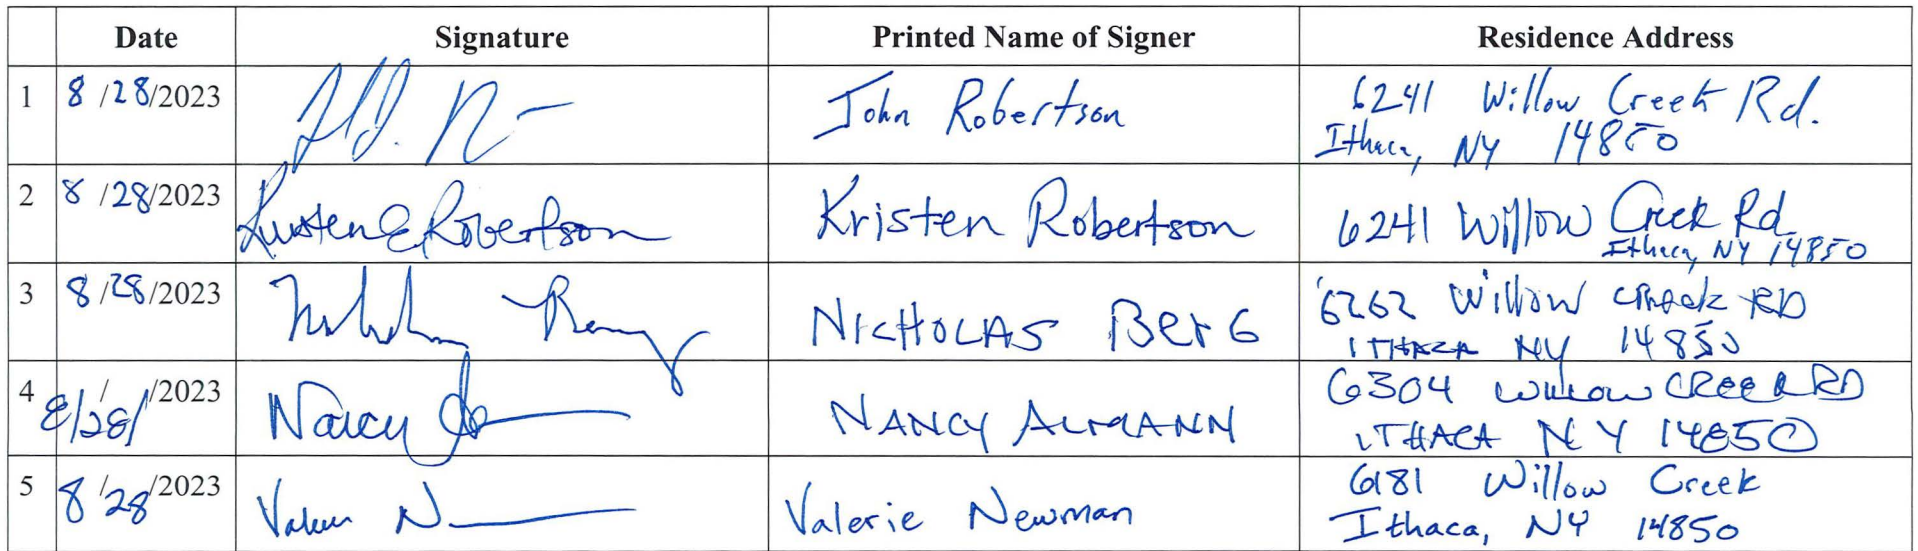 Date Signature Printed Name of Signer Residence Address
1 8/28/2023 John Robertson 6241 Willow Creek Rd.
Ithaca, NY 14850
2 8/28/2023 Kristen E Robertson Kristen Robertson 6241 Willow Creek Rd
Ithaca, NY 14850
3 8/28/2023 NICHOLAS BERG 6262 Willow Creek RD
ITHACA NY 14850
4 8/28/ / /2023 Nancy NANCY 6304 WILLOW CREEK RD
ITHACA NY 14850
5 8/28/2023 Valerie N Valerie Newman 6181 Willow Creek
Ithaca, NY 14850